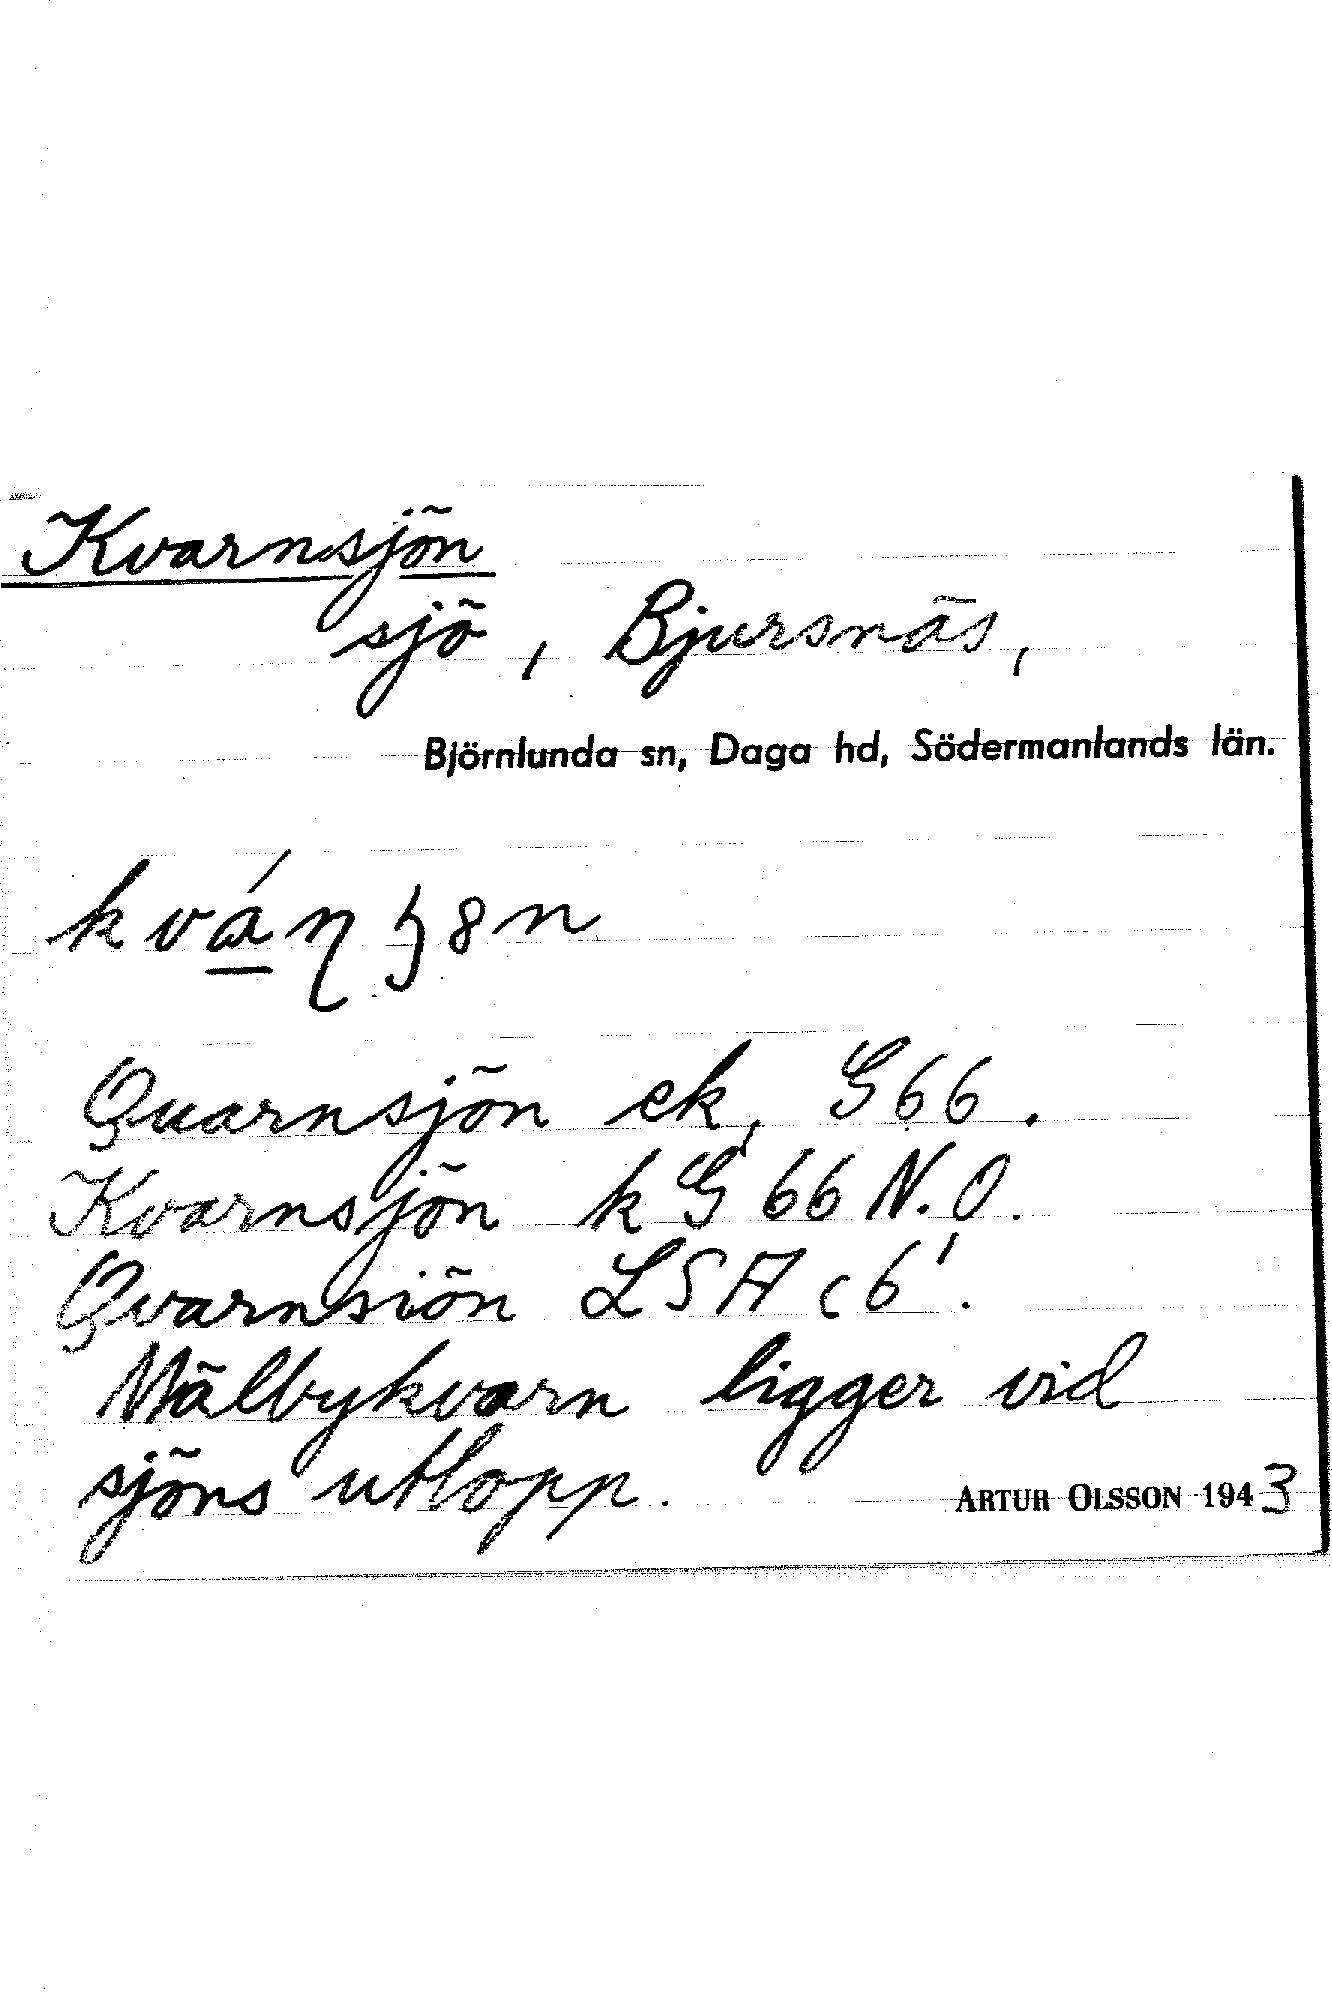 Kvarnsjön
sjö, Bjursnäs,
Björnlunda sn, Daga hd, Södermanlands län.
Quarnsjön ek, G66.
Kvarnsjön k G 66 N.O.
Qvarnsiön LSA c6¹.
Mälbykvarn ligger vid
sjöns utlopp.
ARTUR OLSSON 1943